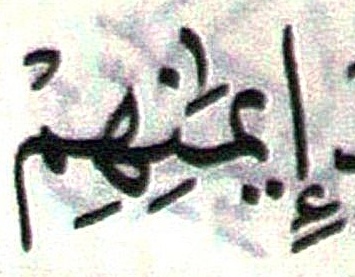 إِيمَٰنِهِمْ